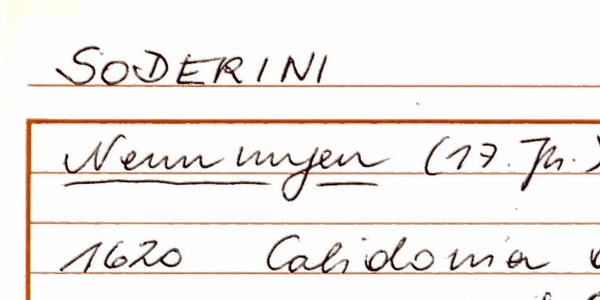 SODERINI
Nennungen (17. Jh.)
1620 Calidonia